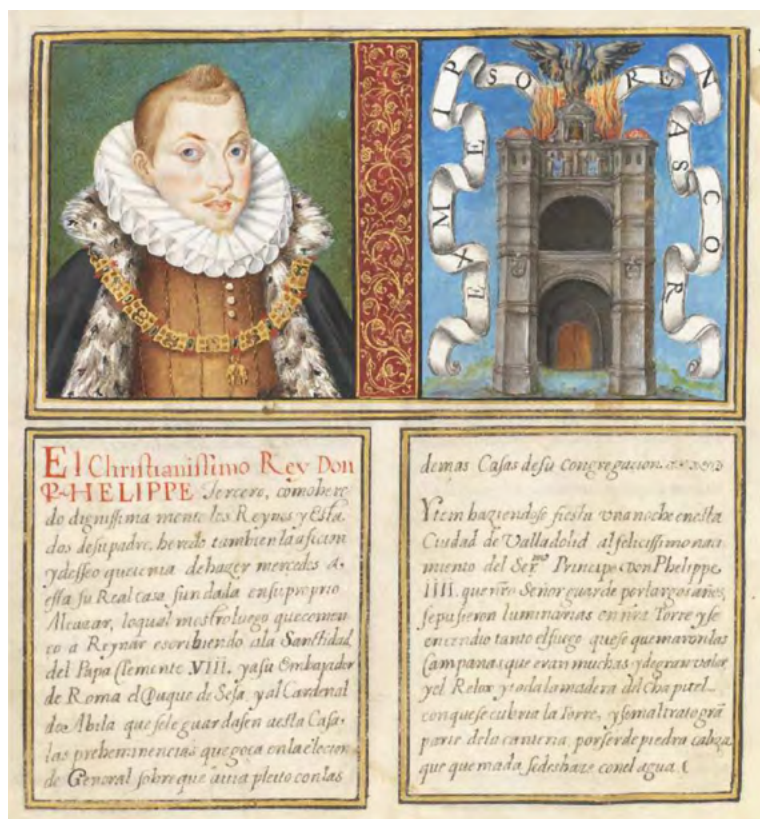 EX ME IPSO RENASCOR
El Christianissimo Rey Don
PHELIPPE Tercero, como here
do dignissima mente los Reynos y Esta
dos de su padre, heredo tambien la aficion
y desseo que tenia de hazer mercedes a
essa su Real casa fundada en su proprio
Alcaçar, lo qual mostro luego que comen
ço a Reynar escribiendo a la Sanctidad
del Papa Clemente VIII. y a su Embajador
de Roma el Duque de Sesa, y al Cardenal
de Abila que se le guardasen a esta Casa.
las preheminencias que goca en la election
de General sobre que auia pleito con las
demas Casas de su Congregacion
Ytem haziendose fiesta vna noche en esta
Ciudad de Valladolid al felicissimo naci
miento del Ser.mo Principe Don Phelippe
IIII. que nro Señor guarde por largos años,
se pusieron luminarias en nra Torre y se
encendio tanto el fuego que se quemaron las
Campanas que eran muchas y de gran valor
y el Relox y toda la madera del Chapitel
con que se cubria la Torre, y se mal trato grã
parte de la canteria, por ser de piedra caliza,
que quemada se deshaze con el agua.